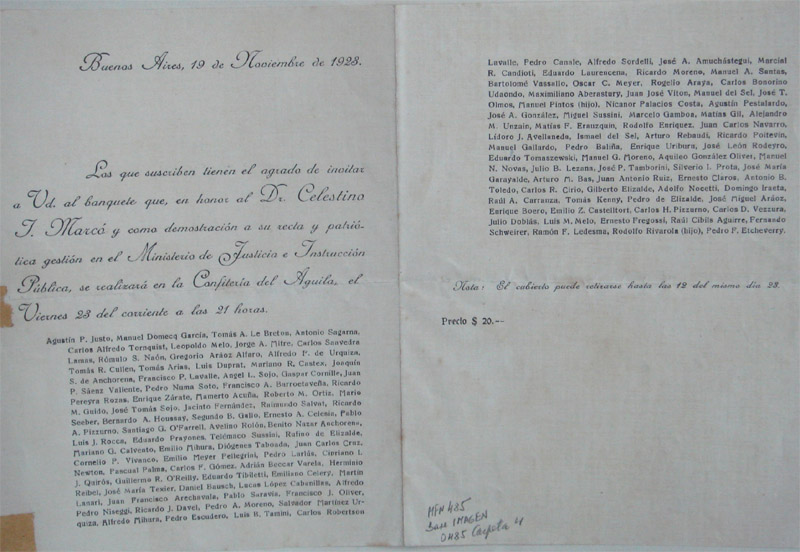 Buenos Aires, 19 de Noviembre de 1923.
Los que suscriben tienen el agrado de invitar
a Vd. al banquete que, en honor al Dr. Celestino
I. Marcó y como demostración a su recta y patrió-
tica gestión en el Ministerio de Justicia e Instrucción
Pública, se realizará en la Confitería del Aguila, el
Viernes 23 del corriente a las 21 horas.
Agustín P. Justo, Manuel Domecq García, Tomás A. Le Breton, Antonio Sagarna,
Carlos Alfredo Tornquist, Leopoldo Melo, Jorge A. Mitre, Carlos Saavedra
Lamas, Rómulo S. Naón, Gregorio Aráoz Alfaro, Alfredo F. de Urquiza,
Tomás R. Cullen, Tomás Arias, Luis Duprat, Mariano R. Castex, Joaquín
S. de Anchorena, Francisco P. Lavalle, Angel L. Sojo, Gaspar Cornille, Juan
P. Sáenz Valiente, Pedro Numa Soto, Francisco A. Barroetaveña, Ricardo
Pereyra Rozas, Enrique Zárate, Mamerto Acuña, Roberto M. Ortiz, Mario
M. Guido, José Tomás Sojo, Jacinto Fernández, Raimundo Salvat, Ricardo
Seeber, Bernardo A. Houssay, Segundo B. Gallo, Ernesto A. Celesia, Pablo
A. Pizzurno, Santiago G. O'Farrell, Avelino Rolón, Benito Nazar Anchorena,
Luis J. Rocca, Eduardo Prayones, Telémaco Sussini, Rufino de Elizalde,
Mariano G. Calvento, Emilio Mihura, Diógenes Taboada, Juan Carlos Cruz,
Cornelio P. Vivanco, Emilio Meyer Pellegrini, Pedro Larlús, Cipriano I.
Newton, Pascual Palma, Carlos F. Gómez, Adrián Beccar Varela, Herminio
J. Quirós, Guillermo R. O'Reilly, Eduardo Tibiletti, Emiliano Celery, Martín
Reibel, José María Texier, Daniel Bausch, Lucas López Cabanillas, Alfredo
Lanari, Juan Francisco Arechavala, Pablo Saravia, Francisco J. Oliver,
Pedro Niseggi, Ricardo J. Davel, Pedro A. Moreno, Salvador Martínez Ur-
quiza, Alfredo Mihura, Pedro Escudero, Luis B. Tamini, Carlos Robertson
Lavalle, Pedro Canale, Alfredo Sordelli, José A. Amuchástegui, Marcial
R. Candioti, Eduardo Laurencena, Ricardo Moreno, Manuel A. Santas,
Bartolomé Vassallo, Oscar C. Meyer, Rogelio Araya, Carlos Bonorino
Udaondo, Maximiliano Aberastury, Juan José Viton, Manuel del Sel, José T.
Olmos, Manuel Pintos (hijo), Nicanor Palacios Costa, Agustín Pestalardo,
José A. González, Miguel Sussini, Marcelo Gamboa, Matías Gil, Alejandro
M. Unzain, Matías F. Erauzquin, Rodolfo Enríquez, Juan Carlos Navarro,
Lidoro J. Avellaneda, Ismael del Sel, Arturo Rebaudi, Ricardo Poitevin,
Manuel Gallardo, Pedro Baliña, Enrique Uriburu, José León Rodeyro,
Eduardo Tomaszewski, Manuel G. Moreno, Aquileo González Oliver, Manuel
N. Novas, Julio B. Lezana, José P. Tamborini, Silverio I. Prota, José María
Garayalde, Arturo M. Bas, Juan Antonio Ruiz, Ernesto Claros, Antonio B.
Toledo, Carlos R. Cirio, Gilberto Elizalde, Adolfo Nocetti, Domingo Iraeta,
Raúl A. Carranza, Tomás Kenny, Pedro de Elizalde, José Miguel Aráoz,
Enrique Boero, Emilio Z. Castelltort, Carlos H. Pizzurno, Carlos D. Vezzura,
Julio Dobiás, Luis M. Melo, Ernesto Fregossi, Raúl Cibils Aguirre, Fernando
Schweizer, Ramón F. Ledesma, Rodolfo Rivarola (hijo), Pedro F. Etcheverry.
Nota: El cubierto puede retirarse hasta las 12 del mismo día 23.
Precio $ 20.--
MFN 485
Base IMAGEN
0485 Carpeta 4